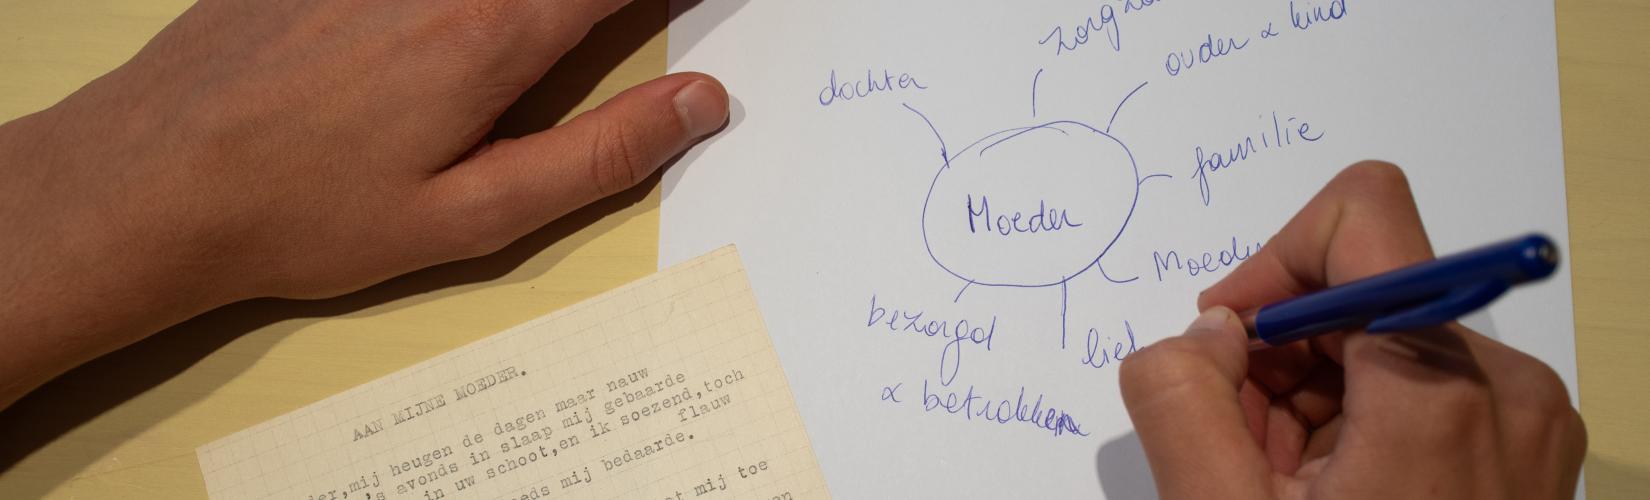 zorgza
ouder & kind
dochter
familie
Moeder
Moede
bezorgd
& betrokken
lief
AAN MIJNE MOEDER.
der,mij heugen de dagen maar nauw
's avonds in slaap mij gebaarde
in uw schoot,en ik soezend,toch
flauw
eds mij bedaarde.
t mij toe